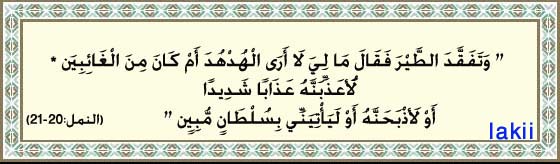 ” وَتَفَقَّدَ الطَّيْرَ فَقَالَ مَا لِيَ لَا أَرَى الْهُدْهُدَ أَمْ كَانَ مِنَ الْغَائِبِيَن *
لَأُعَذِّبَنَّهُ عَذَابًا شَدِيدًا
أَوْ لَأَذْبَحَنَّهُ أَوْ لَيَأْتِيَنِّي بِسُلْطَانٍ مُّبِيٍن ” (النمل:20-21)
lakii